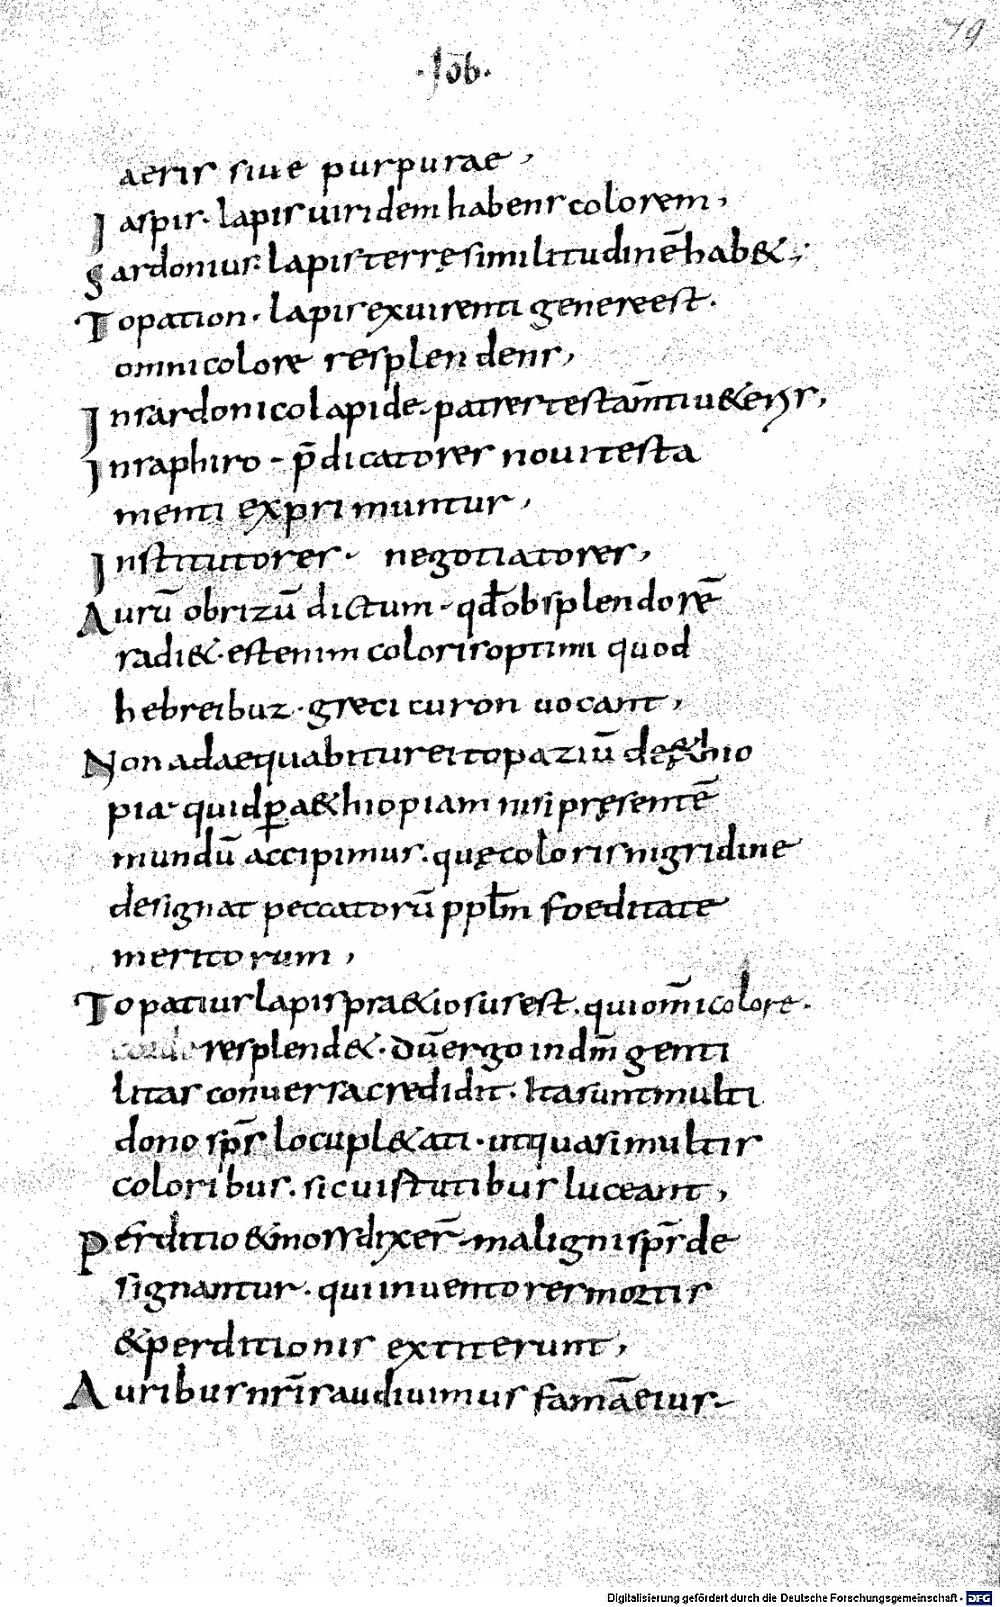 79
·Iōb·
aeris siue purpurae,
Iaspis· lapis uiridem habens colorem,
Sardonius· lapis terrę similitudinē hab&;
Topation· lapis ex uirenti genere est·
omni colore resplendens,
In sardonico lapide· patres testam̄ti u&eris,
In saphiro - p̄dicatores noui testa
menti exprimuntur,
Institutores· negotiatores,
Aurū obrizū dictum· qd̄ ob splendorē
radi&· est enim coloris optimi quod
hebrei buz· greci curon uocant,
Non adaequabitur ei topaziū de ę&hio
pia· quid p̱ a&hiopiam nisi pręsentē
mundū accipimus· quę coloris nigridine
designat peccatorū ppl̄m foeditate
meritorum,
Topatius lapis pra&iosus est· qui om̄i colore·
resplend&· dū ergo in dn̄m genti
litas conuersa credidit· Ita sunt multi
dono sp̄s locupl&ati· ut quasi multis
coloribus· sic uistutibus luceant,
Perditio & mors dixer̄· maligni sp̄s de
signantur· qui inuentores mortis
& perditionis extiterunt,
Auribus nr̄is audiuimus famā eius·
Digitalisierung gefördert durch die Deutsche Forschungsgemeinschaft - DFG